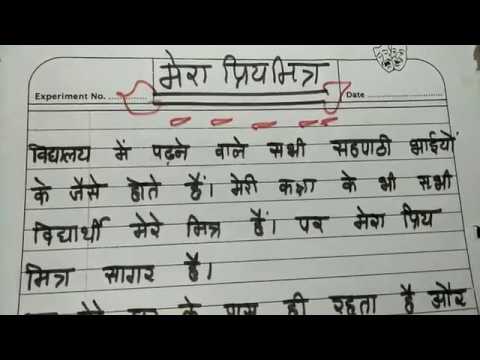 मेरा प्रिय मित्र
Experiment No.
Date
विद्यालय में पढ़ने वाले सभी सहपाठी भाईयों
के जैसे होते हैं। मेरी कक्षा के भी सभी
विद्यार्थी मेरे मित्र हैं। पर मेरा प्रिय
मित्र सागर है।
के पास ही रहता है और